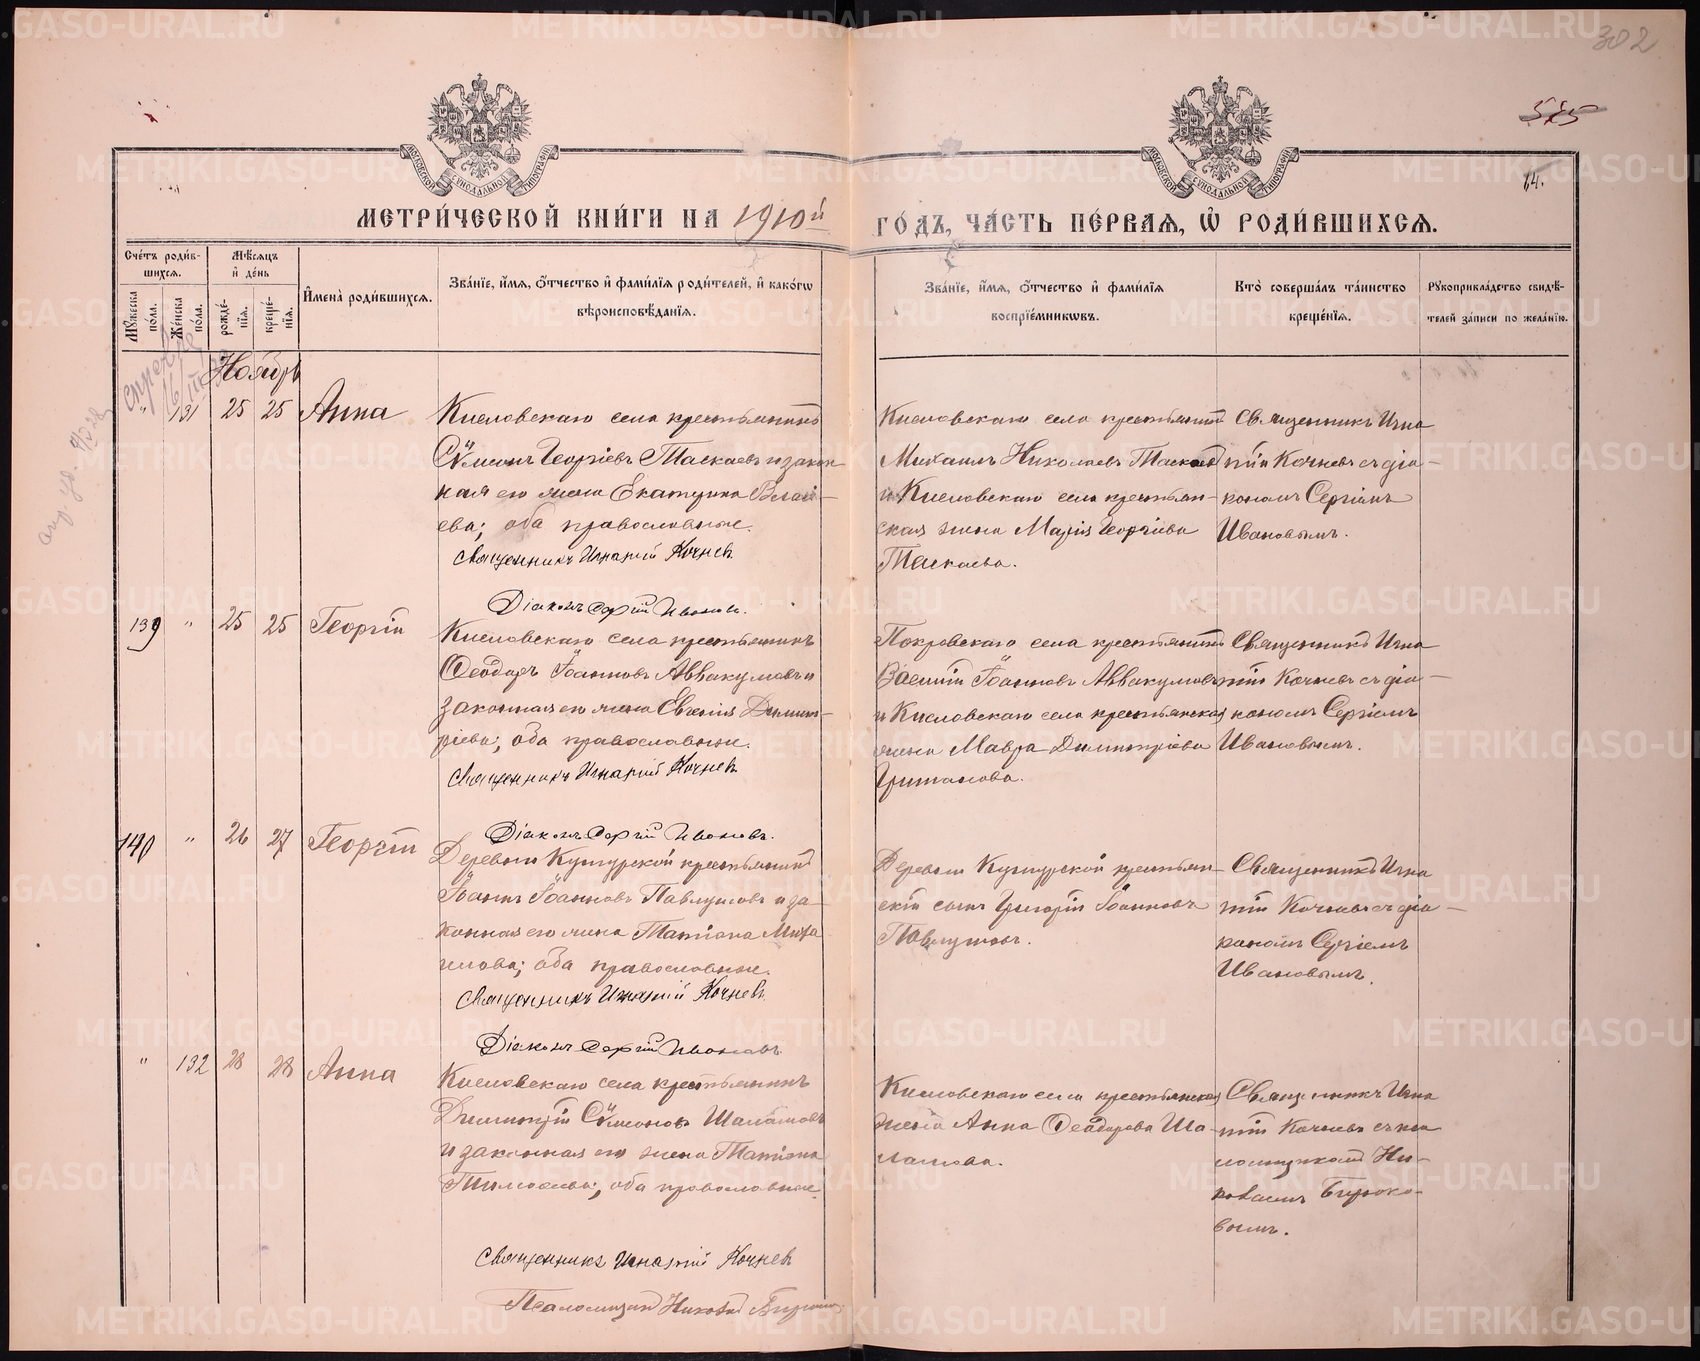 302
515
14.
МЕТРИ́ЧЕСКОЙ КНИ́ГИ НА 1910й ГО́ДЪ, ЧА́СТЬ ПЕ́РВАЯ, Ѡ҆ РОДИ́ВШИХСЯ.
Сче́тъ роди́в-
шихся.
Мꙋ́жеска по́ла.
Же́нска по́ла.
Мѣ́сяцъ и҆ де́нь
рожде́-
нїя.
креще́-
нїя.
И҆мена̀ роди́вшихся.
Зва́нїе, и҆́мя, ѻ҆́тчество и҆ фами́лїя роди́телей, и҆ како́гѡ
вѣроисповѣ́данїя.
Зва́нїе, и҆́мя, ѻ҆́тчество и҆ фами́лїя
воспрїе́мникѡвъ.
Кто̀ соверша́лъ та́инство
креще́нїя.
Рꙋкоприкла́дство свидѣ́-
телей за́писи по жела́нїю.
Ноябрь
" 131 25 25 Анна
Кисловскаго села крестьянинъ
Сѵмеонъ Георгіевъ Таскаевъ и закон
ная его жена Екатерина
ева; оба православные.
Священникъ Игнатій Кочнев
Діаконъ Сергій Ивановъ.
Кисловскаго села крестьянинъ
Михаилъ Николаевъ Таскаевъ
и Кисловскаго села крестьян-
ская жена Марія Георгіева
Таскаева.
Священникъ Игна
тій Кочневъ съ діа-
кономъ Сергіемъ
Ивановымъ.
139 " 25 25 Георгій
Кисловскаго села крестьянинъ
Ѳеодоръ Іоанновъ Аввакумовъ и
законная его жена Евгенія Димит-
ріева; оба православные.
Священникъ Игнатій Кочневъ
Діаконъ Сергій Ивановъ.
Покровскаго села крестьянинъ
Василій Іоанновъ Аввакумовъ
и Кисловскаго села крестьянская
жена Мавра Димитріева
Священникъ Игна
тій Кочневъ съ діа-
кономъ Сергіемъ
Ивановымъ.
140 " 26 27 Георгій
Деревни крестьянинъ
Іоаннъ Іоанновъ Павлушовъ и за-
конная его жена Татіана Миха
илова; оба православные.
Священникъ Игнатій Кочневъ
Діаконъ Сергій Ивановъ.
Деревни крестьян-
скій сынъ Григорій Іоанновъ
Павлушовъ.
Священникъ Игна
тій Кочневъ съ діа-
кономъ Сергіемъ
Ивановымъ.
" 132 28 28 Анна
Кисловскаго села крестьянинъ
Димитрій Сѵмеоновъ Шаламовъ
и законная его жена Татіана
Тимоѳеева; оба православные.
Священникъ Игнатій Кочнев
Псаломщикъ
Кисловскаго села крестьянская
жена Анна Ѳеодорова Ша-
ламова.
Священникъ Игна
тій Кочневъ съ пса
ломщикомъ Ни-
Бирюко-
вымъ.
METRIKI.GASO-URAL.RU